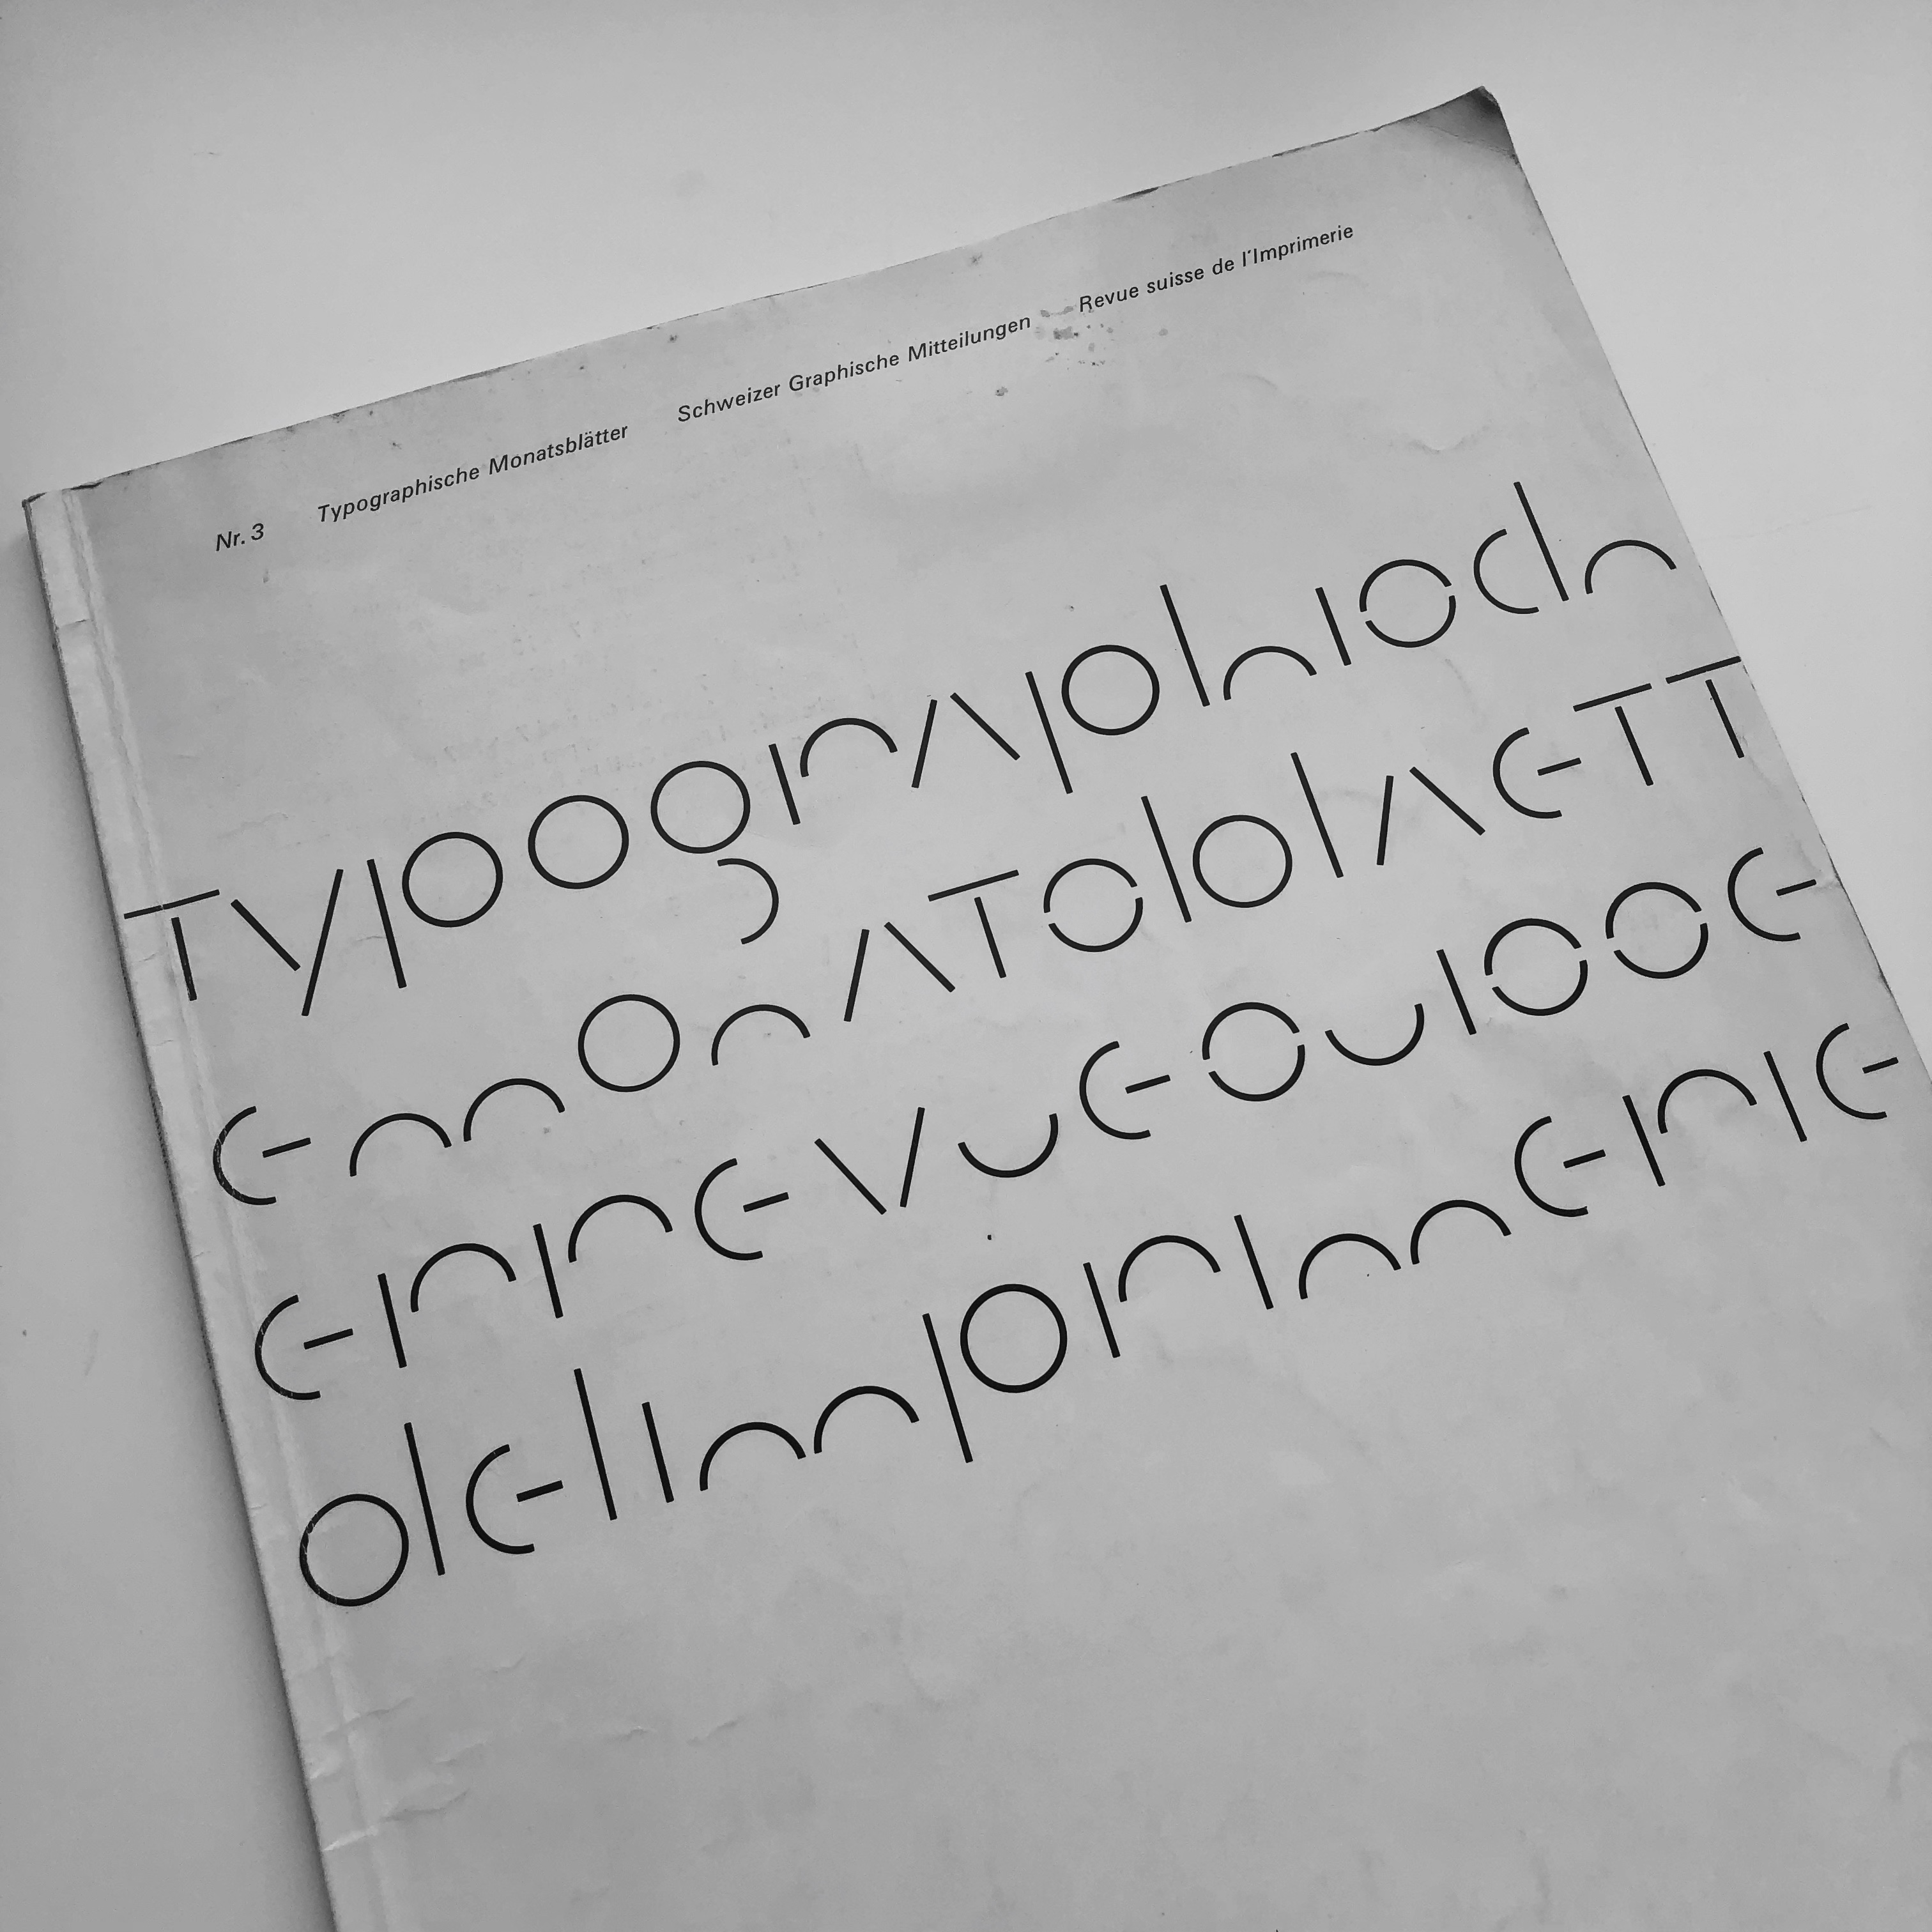 Nr. 3 Typographische Monatsblätter Schweizer Graphische Mitteilungen Revue suisse de l'Imprimerie
Typographisch
emonatsblaett
errevuesuisse
delimprimerie